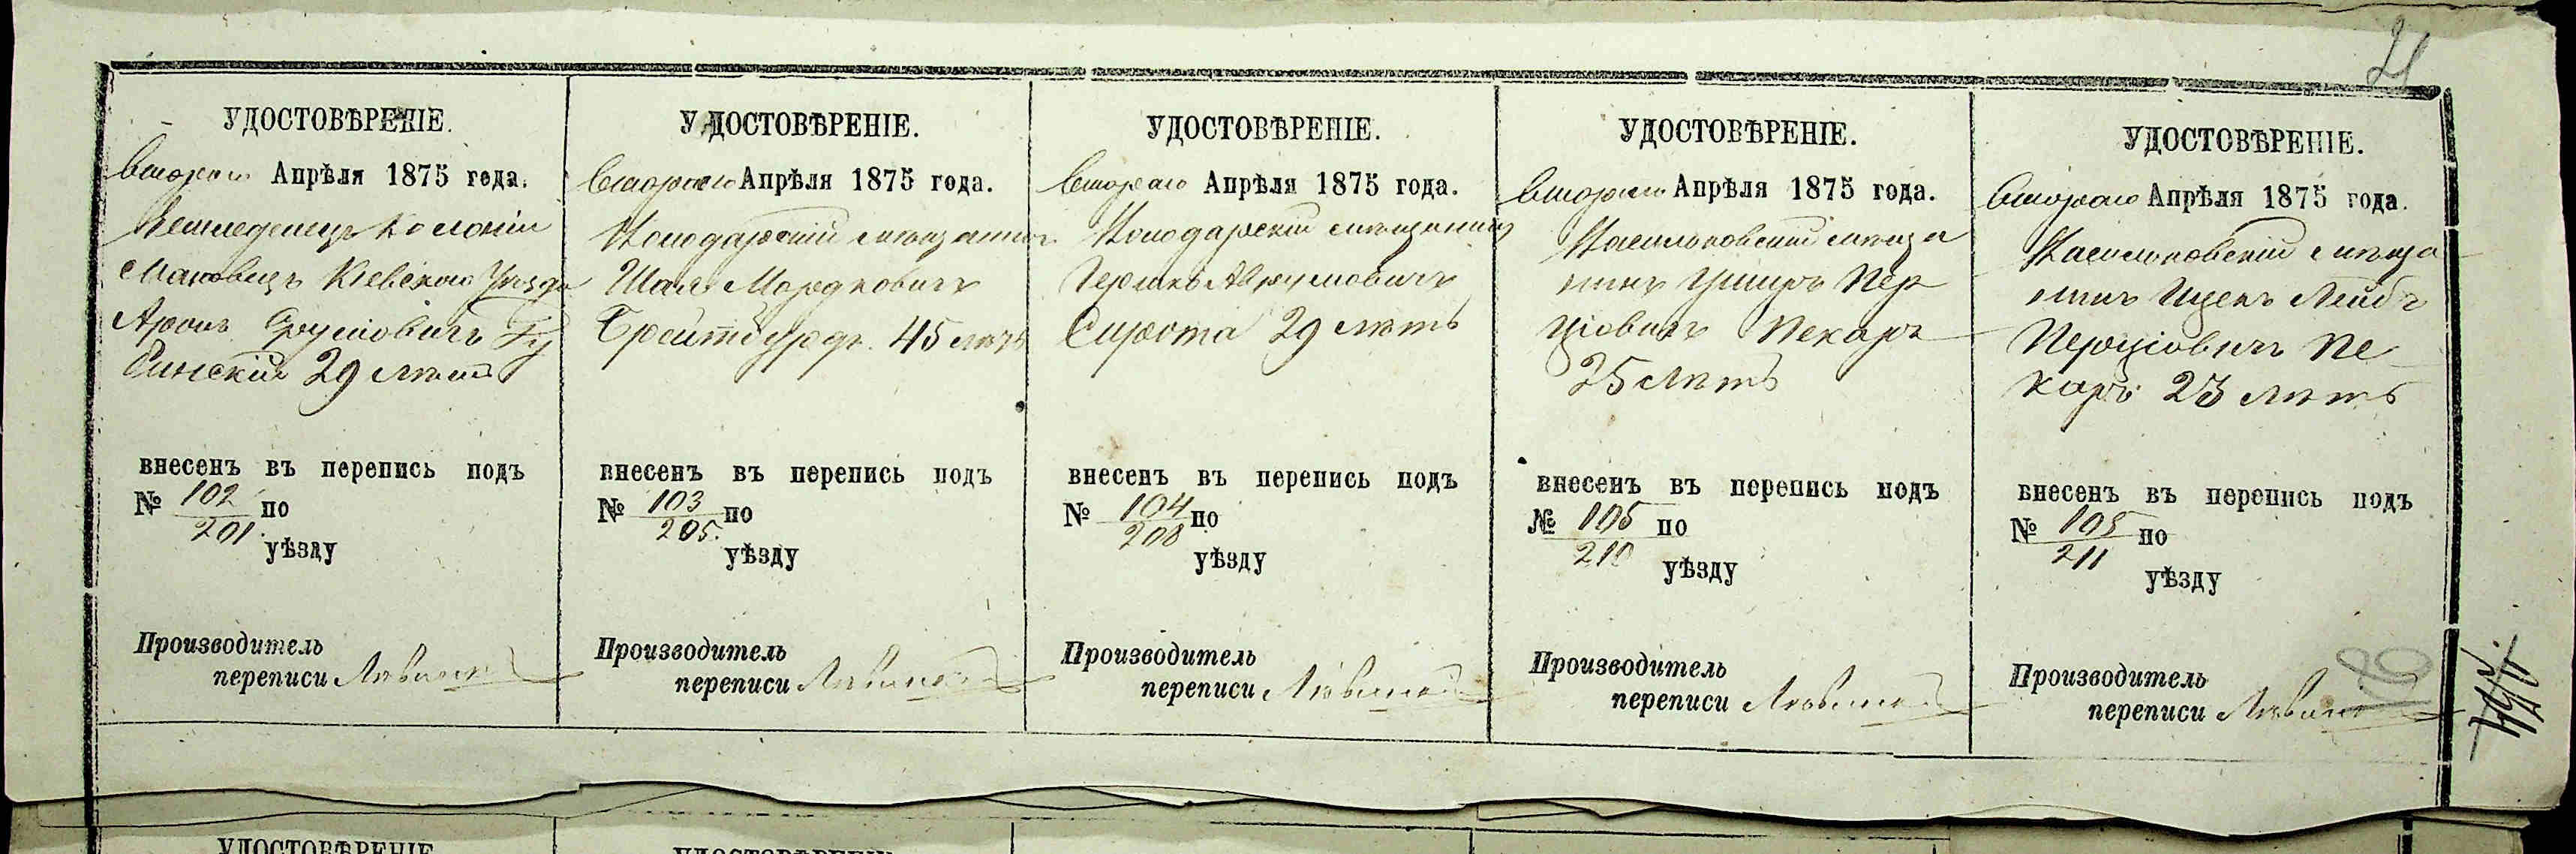 21
УДОСТОВѢРЕНІЕ.
Втораго Апрѣля 1875 года.
Земледелецъ Колоніи
Маковецъ Кіевскаго Уѣзда
Аронъ Срулiовичъ Гу
синскій 29 лѣтъ
внесенъ въ перепись подъ
№ 102 по
201. уѣзду
Производитель
переписи
УДОСТОВѢРЕНІЕ.
Втораго Апрѣля 1875 года.
мѣщанинъ
Шая Мордковичъ
45 лѣтъ
внесенъ въ перепись подъ
№ 103 по
205. уѣзду
Производитель
переписи
УДОСТОВѢРЕНІЕ.
Втораго Апрѣля 1875 года.
мѣщанинъ
Гершко Аврумовичъ
Сирота 29 лѣтъ
внесенъ въ перепись подъ
№ 104 по
208 уѣзду
Производитель
переписи
УДОСТОВѢРЕНІЕ.
Втораго Апрѣля 1875 года.
Васильковскій мѣща
нинъ Ушеръ Пер
цiовичъ Пекаръ
25 лѣтъ
внесенъ въ перепись подъ
№ 105 по
210 уѣзду
Производитель
переписи
УДОСТОВѢРЕНІЕ.
Втораго Апрѣля 1875 года.
Васильковскій мѣща
нинъ Ицекъ Лейбъ
Перцiовичъ Пе
каръ 23 лѣтъ
внесенъ въ перепись подъ
№ 105 по
211 уѣзду
Производитель
переписи
УДОСТОВѢРЕНІЕ